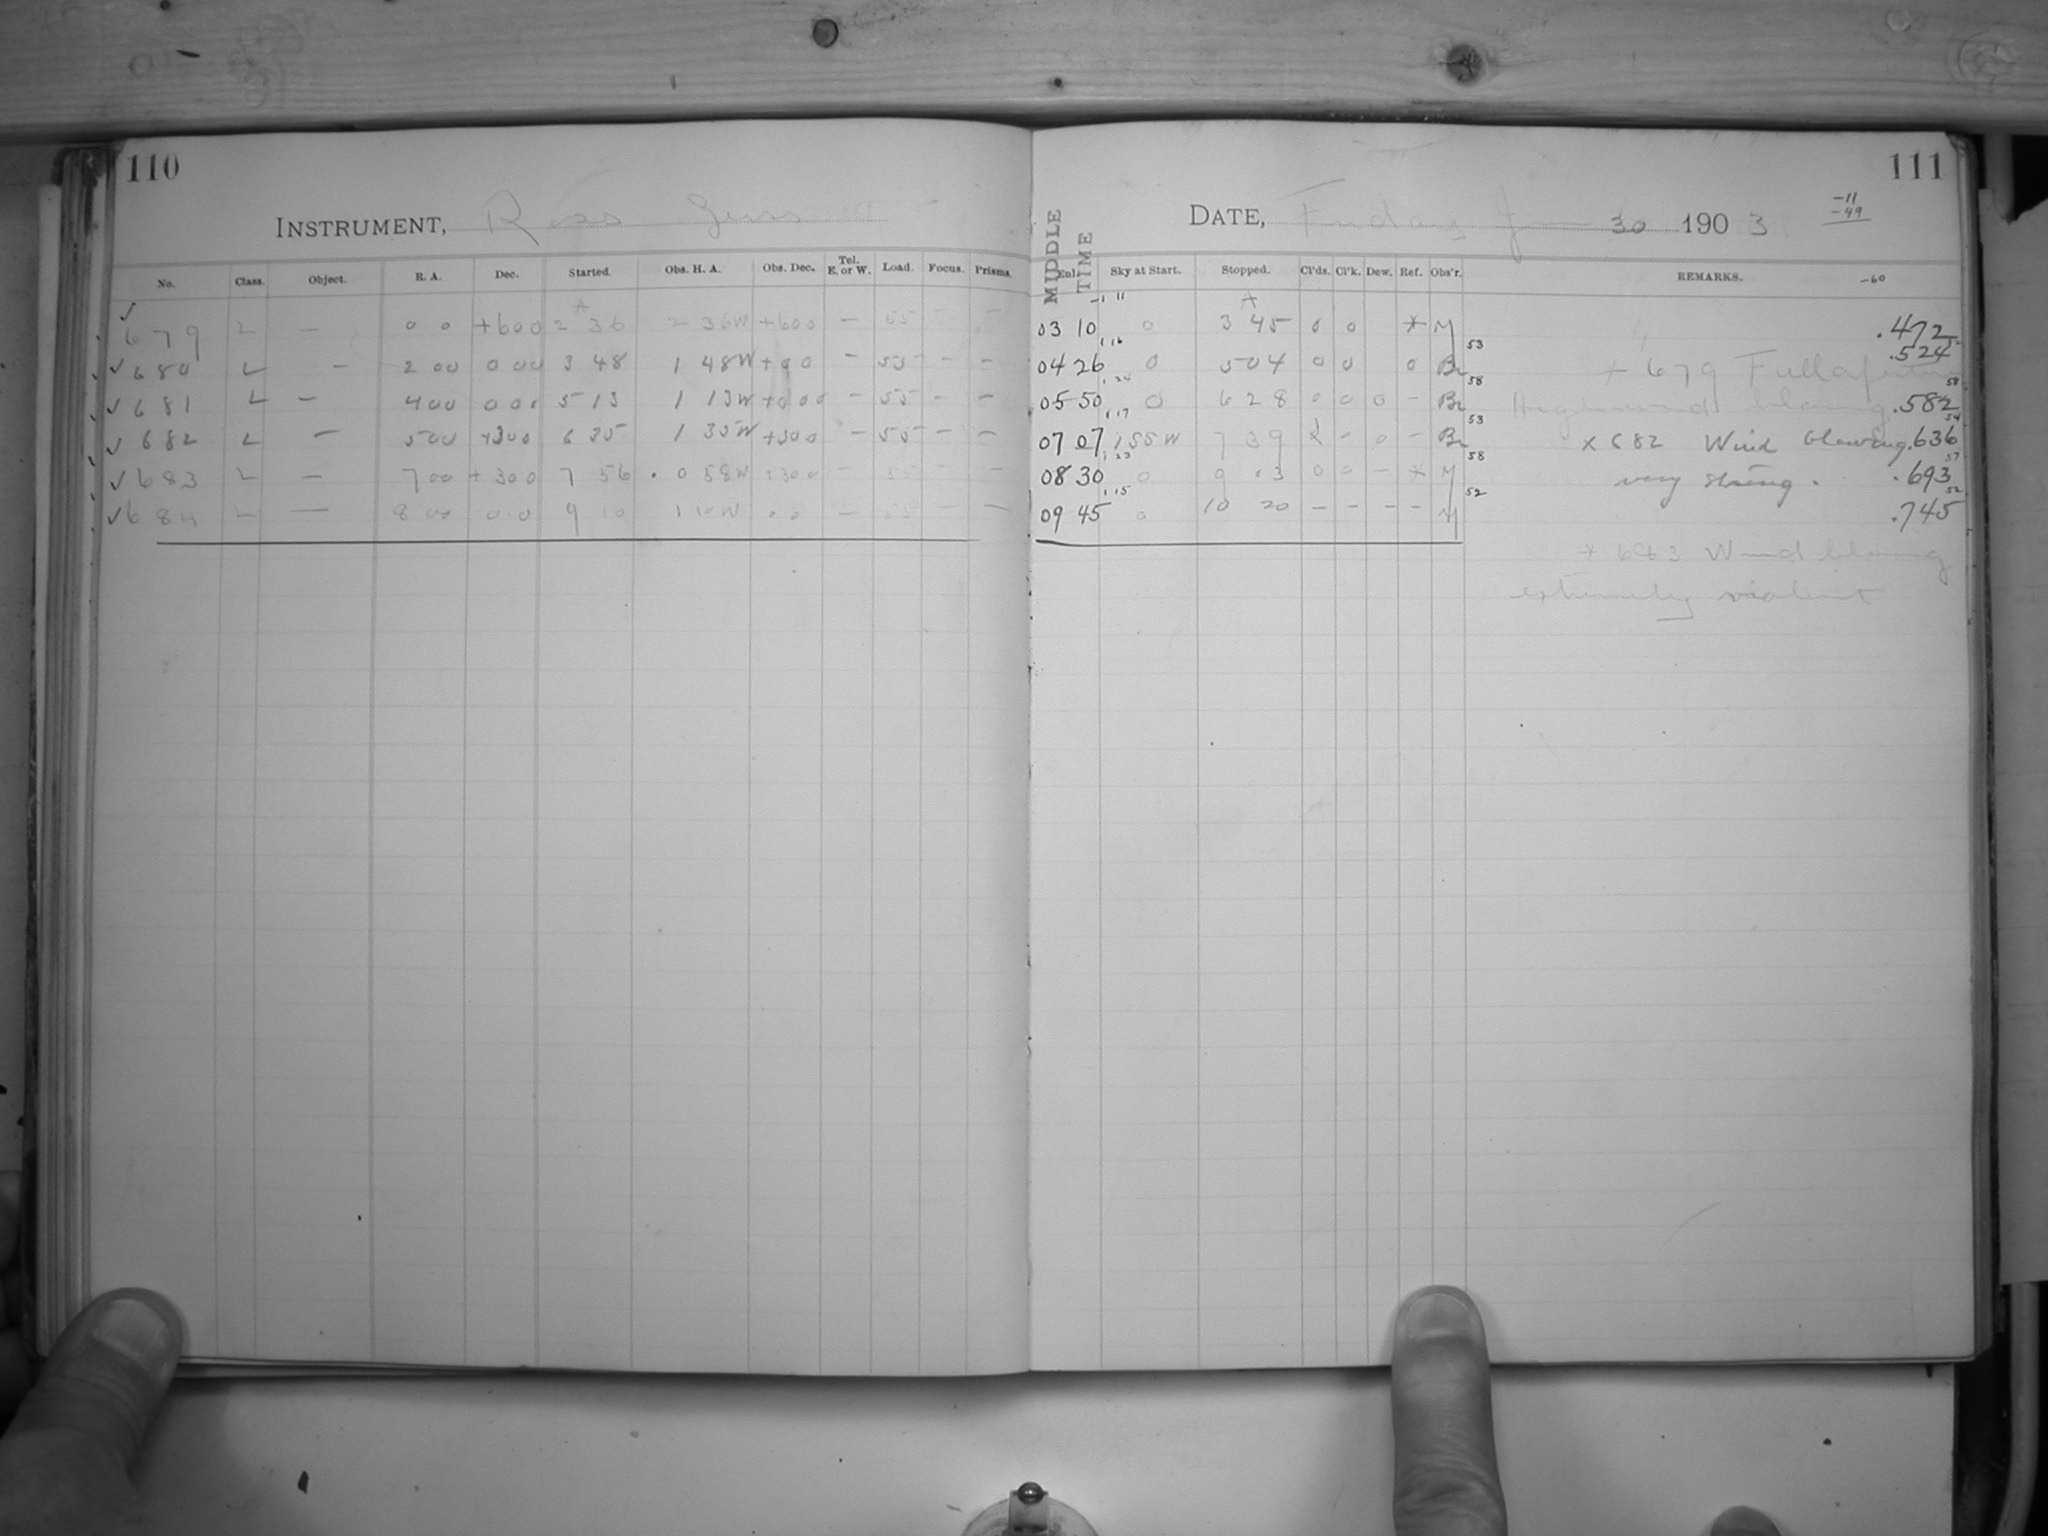 110
INSTRUMENT, Ross Lens
No. Class. Object. R. A. Dec. Started. Obs. H. A. Obs. Dec. Tel. E. or W. Load. Focus. Prisms.
A
✓ 679 L — 0 0 +600 2 36 2 36W +600 — 55 — —
✓ 680 L — 2 00 000 3 48 1 48W +00 — 55 — —
✓ 681 L — 400 000 5 13 1 13W +000 — 55 — —
✓ 682 L — 500 +300 6 35 1 35W +300 — 55 — —
✓ 683 L — 700 +300 7 56 0 58W +300 — 55 — —
✓ 684 L — 8 00 00 9 10 1 10W 00 — 55 — —
111
DATE, Friday Jan 30 1903
-11
-49
-60
MIDDLE TIME
Enl. Sky at Start. Stopped. Cl'ds. Cl'k. Dew. Ref. Obs'r. REMARKS.
-1 11 A
03 10 0 3 45 0 0 * M .472
1 16 53 52
04 26 0 504 0 0 0 Br + 679 Full aperture .524
1 24 58 58
05 50 0 6 28 0 0 0 — Br High wind blowing .582
1 17 53 54
07 07 1 SSW 7 39 — 0 — Br x 682 Wind blowing .636
1 23 58 57
08 30 0 9 03 0 0 — * M very strong. .693
1 15 52 52
09 45 0 10 20 — — — — M .745
* 683 Wind blowing
extremely violent